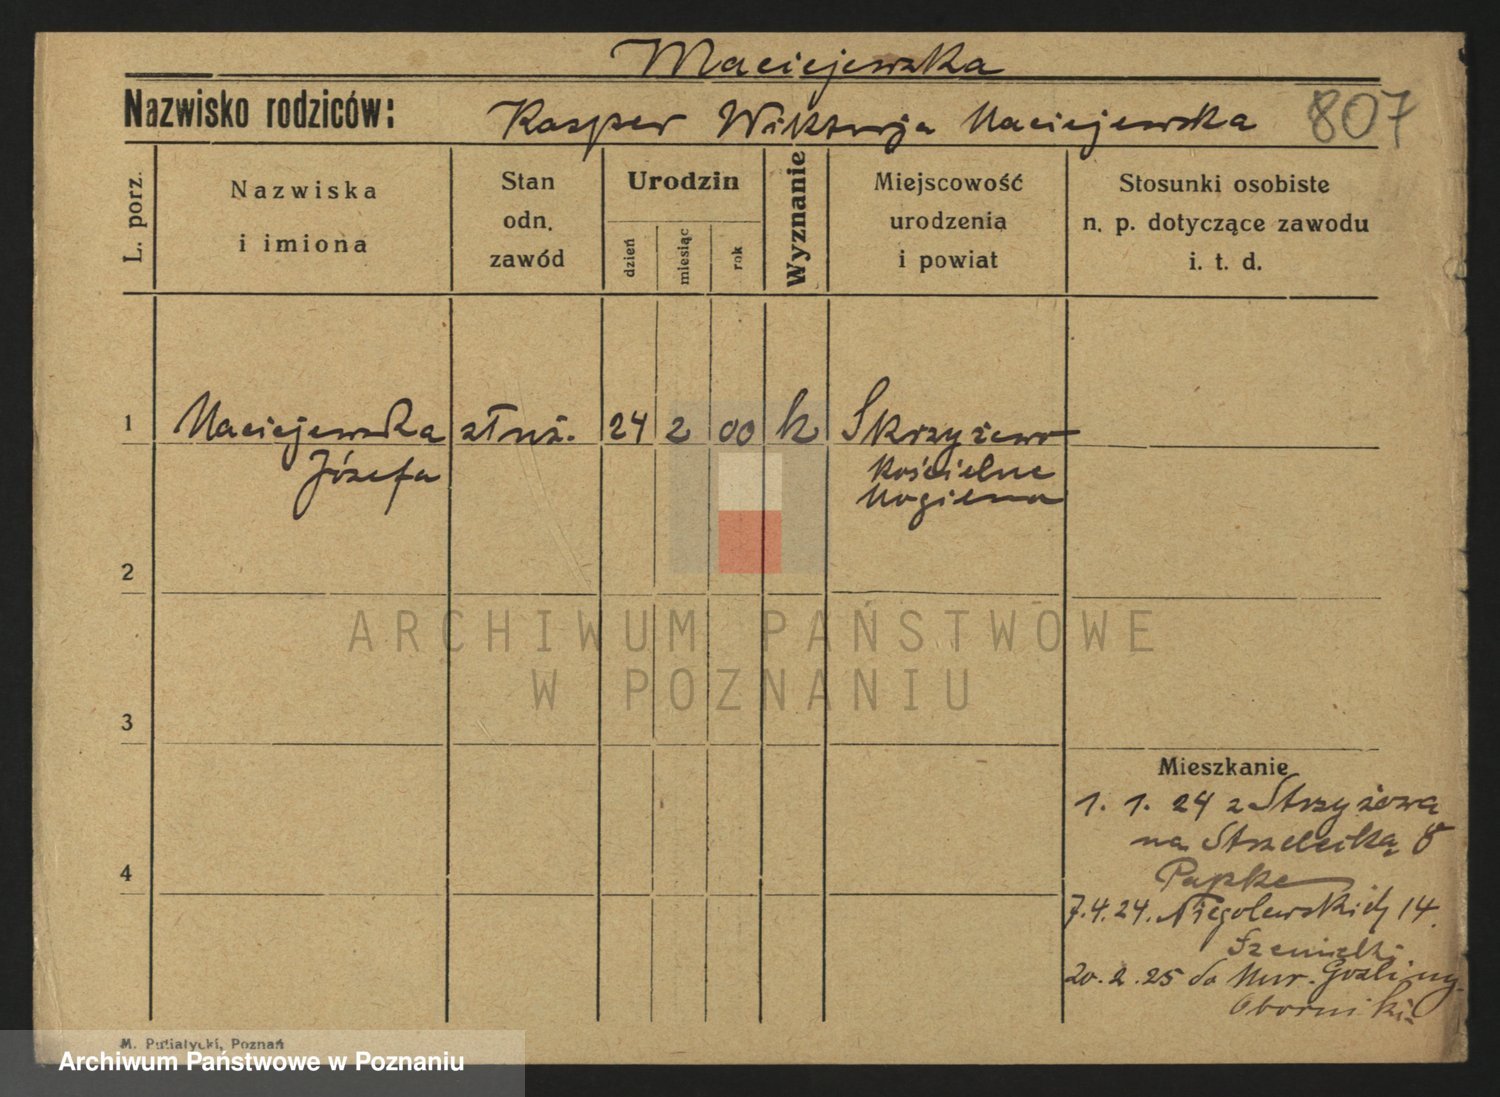 Maciejewska
Nazwisko rodziców:
Kasper Wiktorja Maciejewska 807
L. porz.
Nazwiska
i imiona
Stan
odn.
zawód
Urodzin
dzień
miesiąc
rok
Wyznanie
Miejscowość
urodzenia
i powiat
Stosunki osobiste
n. p. dotyczące zawodu
i. t. d.
1 Maciejewska służ. 24 2 00 k Skrzyżewo
Józefa
Kościelne
Mogilno
2
3
4
Mieszkanie
1. 1. 24 z Strzyżewa
na Strzelecką 8
Papke
7.4.24. Niegolewskich 14.
20.2.25 do Mur. Gośliny
Oborniki
ARCHIWUM PAŃSTWOWE
W POZNANIU
M. Putiatycki, Poznań
Archiwum Państwowe w Poznaniu